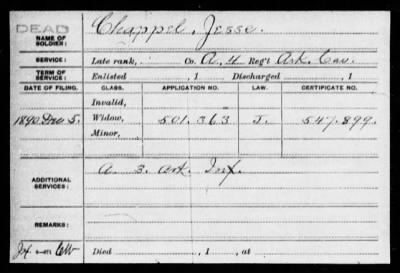 DEAD
NAME OF SOLDIER: Chappel, Jesse.
SERVICE: Late rank, Co. A, 4 Reg't Ark. Cav.
TERM OF SERVICE: Enlisted , 1 Discharged , 1
DATE OF FILING. CLASS. APPLICATION NO. LAW. CERTIFICATE NO.
Invalid,
1890 Dec 5. Widow, 501.363 J. 547.899.
Minor,
ADDITIONAL SERVICES: A. 3. Ark. Inf.
REMARKS:
Died , 1 , at